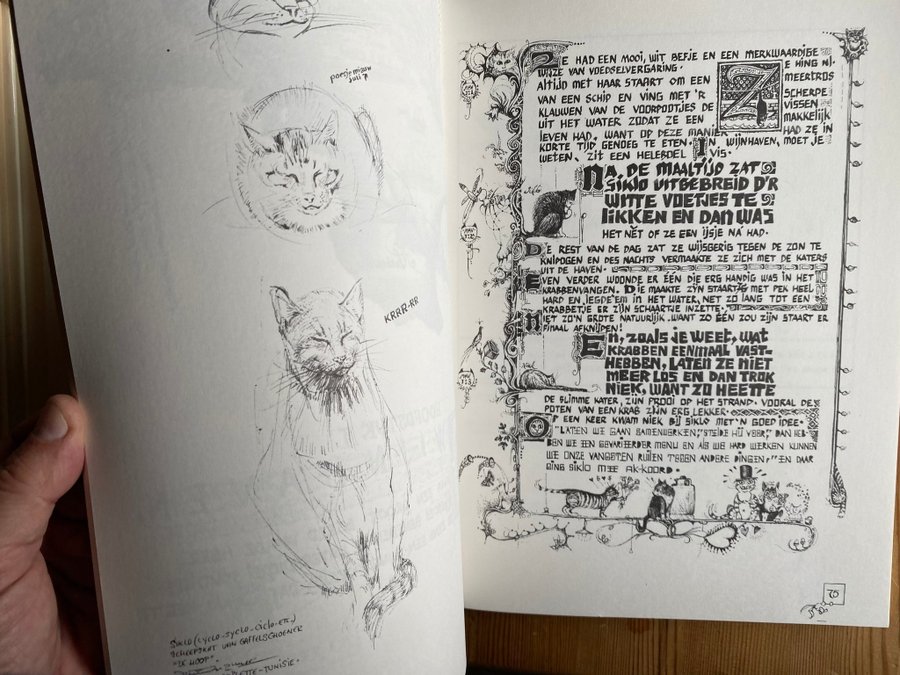 poesje mizou
juli '8
KRRR-RR
SIKLO (CYCLO-SYCLO-CIKLO-ETC)
SCHEEPSKAT VAN GAFFELSCHOENER
"DE HOOP".
TUNISIE.
ZE HAD EEN MOOI, WIT BEFJE EN EEN MERKWAARDIGE
WIJZE VAN VOEDSELVERGARING.
ZE HING NL.
ALTIJD MET HAAR STAART OM EEN
MEERTROS
VAN EEN SCHIP EN VING MET 'R
SCHERPE
KLAUWEN VAN DE VOORPOOTJES DE
VISSEN
UIT HET WATER ZODAT ZE EEN
MAKKELIJK
LEVEN HAD. WANT OP DEZE MANIER
HAD ZE IN
KORTE TIJD GENOEG TE ETEN. IN WIJNHAVEN, MOET JE
WETEN, ZIT EEN HELEBOEL VIS.
NA, DE MAALTIJD ZAT
SIKLO UITGEBREID D'R
WITTE VOETJES TE
LIKKEN EN DAN WAS
HET NÈT OF ZE EEN IJSJE NA HAD.
DE REST VAN DE DAG ZAT ZE WIJSGERIG TEGEN DE ZON TE
KNIPOGEN EN DES NACHTS VERMAAKTE ZE ZICH MET DE KATERS
UIT DE HAVEN.
EVEN VERDER WOONDE ER ÉÉN DIE ERG HANDIG WAS IN HET
KRABBENVANGEN. DIE MAAKTE ZYN STAARTJE MET PEK HEEL
HARD EN LEGDE'EM IN HET WATER, NET ZO LANG TOT EEN
KRABBETJE ER ZIJN SCHAARTJE INZETTE.
NIET ZO'N GROTE NATUURLIJK. WANT ZO ÉÉN ZOU ZIJN STAART ER
FINAAL AFKNIJPEN!
EN, ZOALS JE WEET, WAT
KRABBEN EENMAAL VAST-
HEBBEN, LATEN ZE NIET
MEER LOS EN DAN TROK
NIEK, WANT ZO HEETTE
DE SLIMME KATER, ZIJN PROOI OP HET STRAND. VOORAL DE
POTEN VAN EEN KRAB ZIJN ERG LEKKER.
OP EEN KEER KWAM NIEK BIJ SIKLO MET'N GOED IDEE.
"LATEN WE GAAN SAMENWERKEN," STELDE HIJ VOOR," DAN HEB-
BEN WE EEN GEVARIEERDER MENU EN ALS WE HARD WERKEN KUNNEN
WE ONZE VANGSTEN RUILEN TEGEN ANDERE DINGEN," EN DAAR
GING SIKLO MEE AK-KOORD.
75